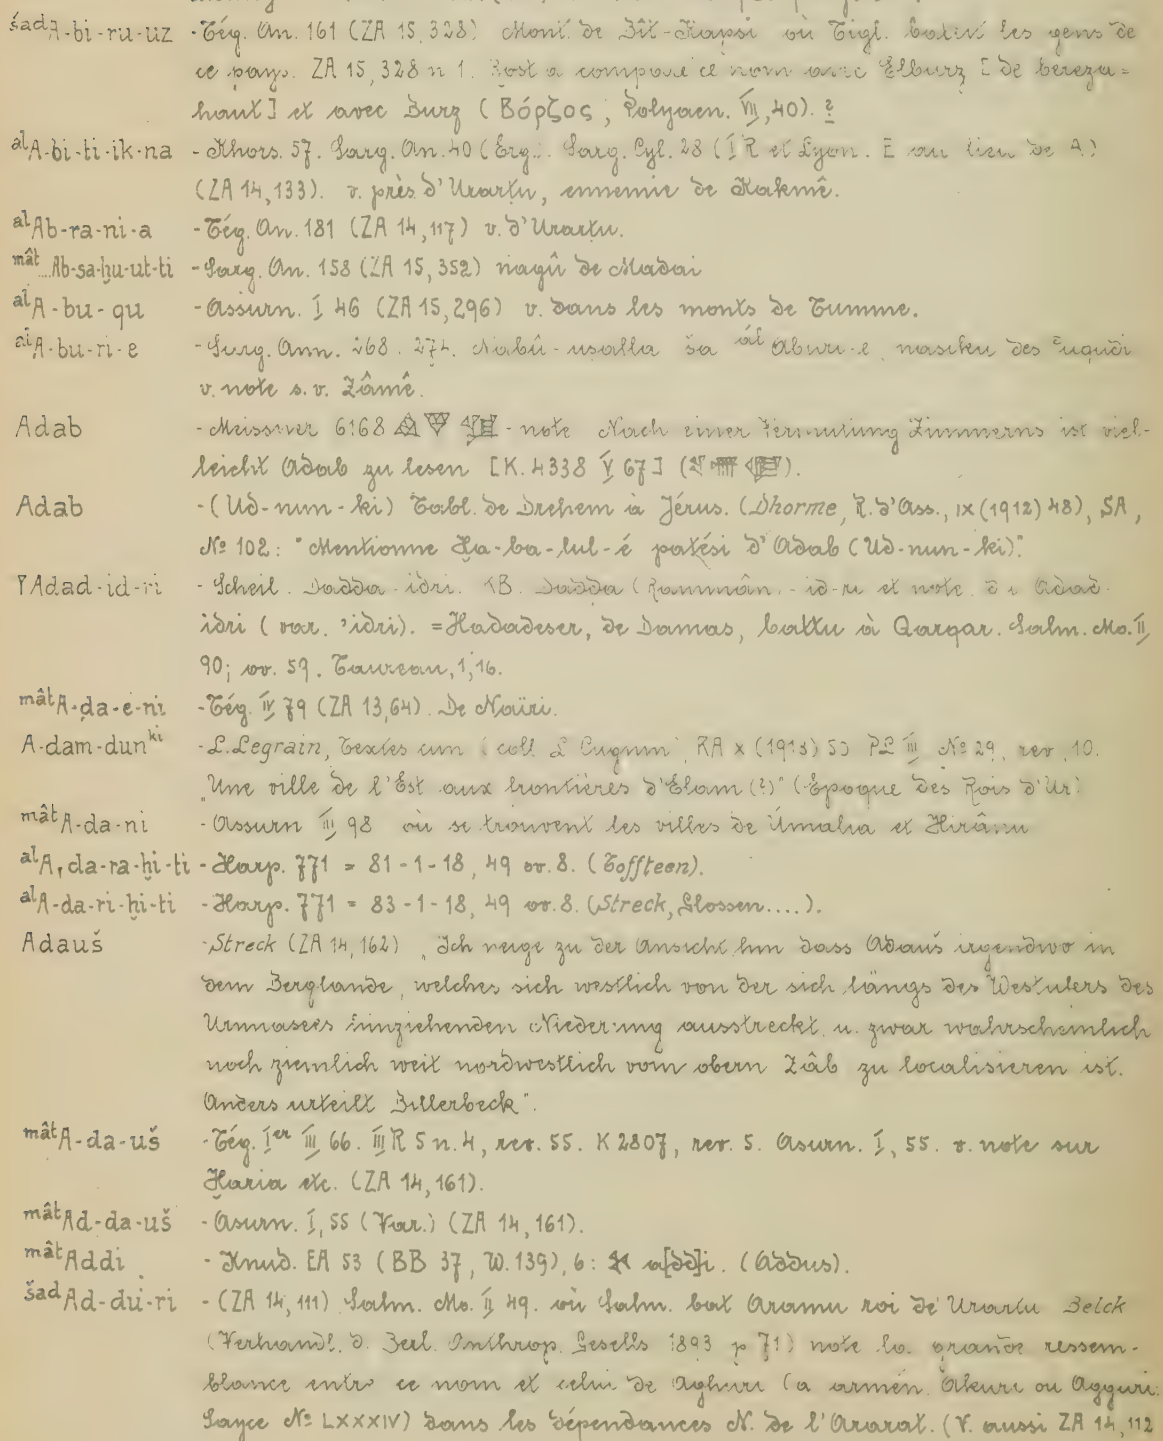 šad A-bi-ru-uz - Tég. An. 161 (ZA 15, 328) Mont. de Bît-Kapsi où Tigl. battit les gens de
ce pays. ZA 15, 328 n 1. Rost a comparé ce nom avec Elburz [de bereza =
haut] et avec Burz (Βόρζος, Polyaen. VII, 40). ?
al A-bi-ti-ik-na - Khors. 57. Sarg. An. 40 (Erg.. Sarg. Cyl. 28 (I R et Lyon. E au lieu de A)
(ZA 14, 133). v. près d'Urartu, ennemie de Kakmê.
al Ab-ra-ni-a - Tég. An. 181 (ZA 14, 117) v. d'Urartu.
mât Ab-sa-ḫu-ut-ti - Sarg. An. 158 (ZA 15, 352) nagû de Madai
al A-bu-qu - Assurn. I 46 (ZA 15, 296) v. dans les monts de Tumme.
al A-bu-ri-e - Sarg. Ann. 268. 274. Nabû-usalla ša al Aburi-e, nasiku des
v. note s. v. Zâmê.
Adab - Meissner 6168 - note Nach einer Vermutung Zimmerns ist viel-
leicht Adab zu lesen [K. 4338 V 67] ().
Adab - (Ud-nun-ki) Tabl. de Drehem à Jérus. (Dhorme, R. d'Ass., IX (1912) 48), SA,
Nº 102: "Mentionne Ḫa-ba-lul-é patési d'Adab (Ud-nun-ki)".
Adad-id-ri - Scheil. Dadda-idri. KB. Dadda (Rammân.- id-ri et note. Adad.
idri (var. 'idri). = Hadadeser, de Damas, battu à Qarqar. Salm. Mo. II
90; ov. 59. Taureau, 1, 16.
mât A-da-e-ni - Tég. IV 79 (ZA 13, 64). De Naïri.
A-dam-dun ki - L. Legrain, Textes cun (coll L Cugnin, RA X (1913) 53 PL III Nº 29, rev. 10.
"Une ville de l'Est aux frontières d'Elam (?)" (Epoque des Rois d'Ur)
mât A-da-ni - Assurn III 98 où se trouvent les villes de Umalia et Hirânu
al A, da-ra-ḫi-ti - Harp. 771 = 81-1-18, 49 ov. 8. (Toffteen).
al A-da-ri-ḫi-ti - Harp. 771 = 83-1-18, 49 ov. 8. (Streck, Glossen....).
Adauš - Streck (ZA 14, 162) „Ich neige zu der Ansicht hin dass Adauš irgendwo in
dem Berglande, welches sich westlich von der sich längs des Westufers des
Urmiasees hinziehenden Niederung ausstreckt, u. zwar wahrscheinlich
noch ziemlich weit nordwestlich vom obern Zâb zu localisieren ist.
Anders urteilt Billerbeck".
mât A-da-uš - Tég. Ier III 66. III R 5 n. 4, rev. 55. K 2807, rev. 5. Asurn. I, 55. v. note sur
Ḫaria etc. (ZA 14, 161).
mât Ad-da-uš - Asurn. I, 55 (Var.) (ZA 14, 161).
mât Addi - Knud. EA 53 (BB 37, W. 139), 6: a[dd]i. (Addus).
šad Ad-du-ri - (ZA 14, 111) Salm. Mo. II 49. où Salm. bat Aramu roi de Urartu Belck
(Verhandl. d. Berl. Anthrop. Gesells 1893 p 71) note la grande ressem-
blance entre ce nom et celui de Aghuri (a armén. Akuri ou Agguri.
Sayce Nº LXXXIV) dans les dépendances N. de l'Ararat. (V. aussi ZA 14, 112